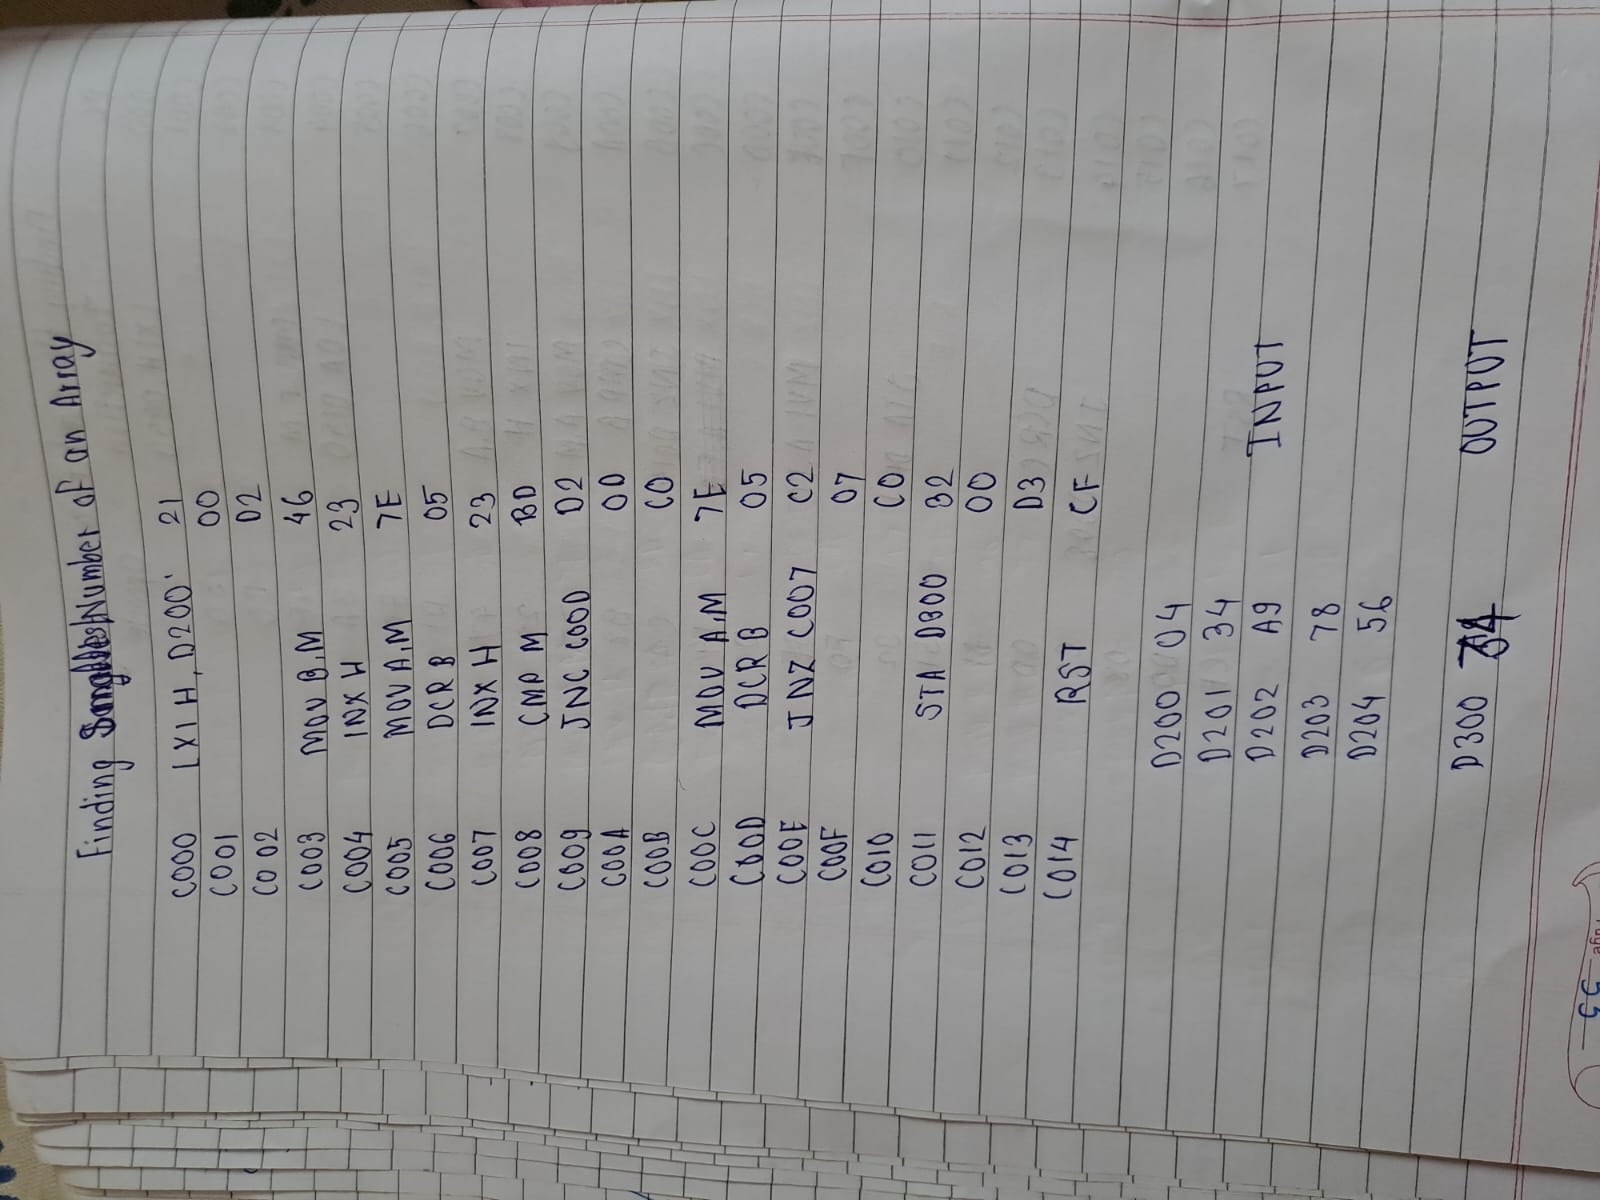 Finding Number of an Array
C000 LXI H, D200 21
C001 00
C002 D2
C003 MOV B,M 46
C004 INX H 23
C005 MOV A,M 7E
C006 DCR B 05
C007 INX H 23
C008 CMP M BD
C009 JNC C00D D2
C00A 0D
C00B C0
C00C MOV A,M 7E
C00D DCR B 05
C00E JNZ C007 C2
C00F 07
C010 C0
C011 STA D300 32
C012 00
C013 D3
C014 RST CF
D200 04
D201 34
D202 A9 INPUT
D203 78
D204 56
D300 OUTPUT